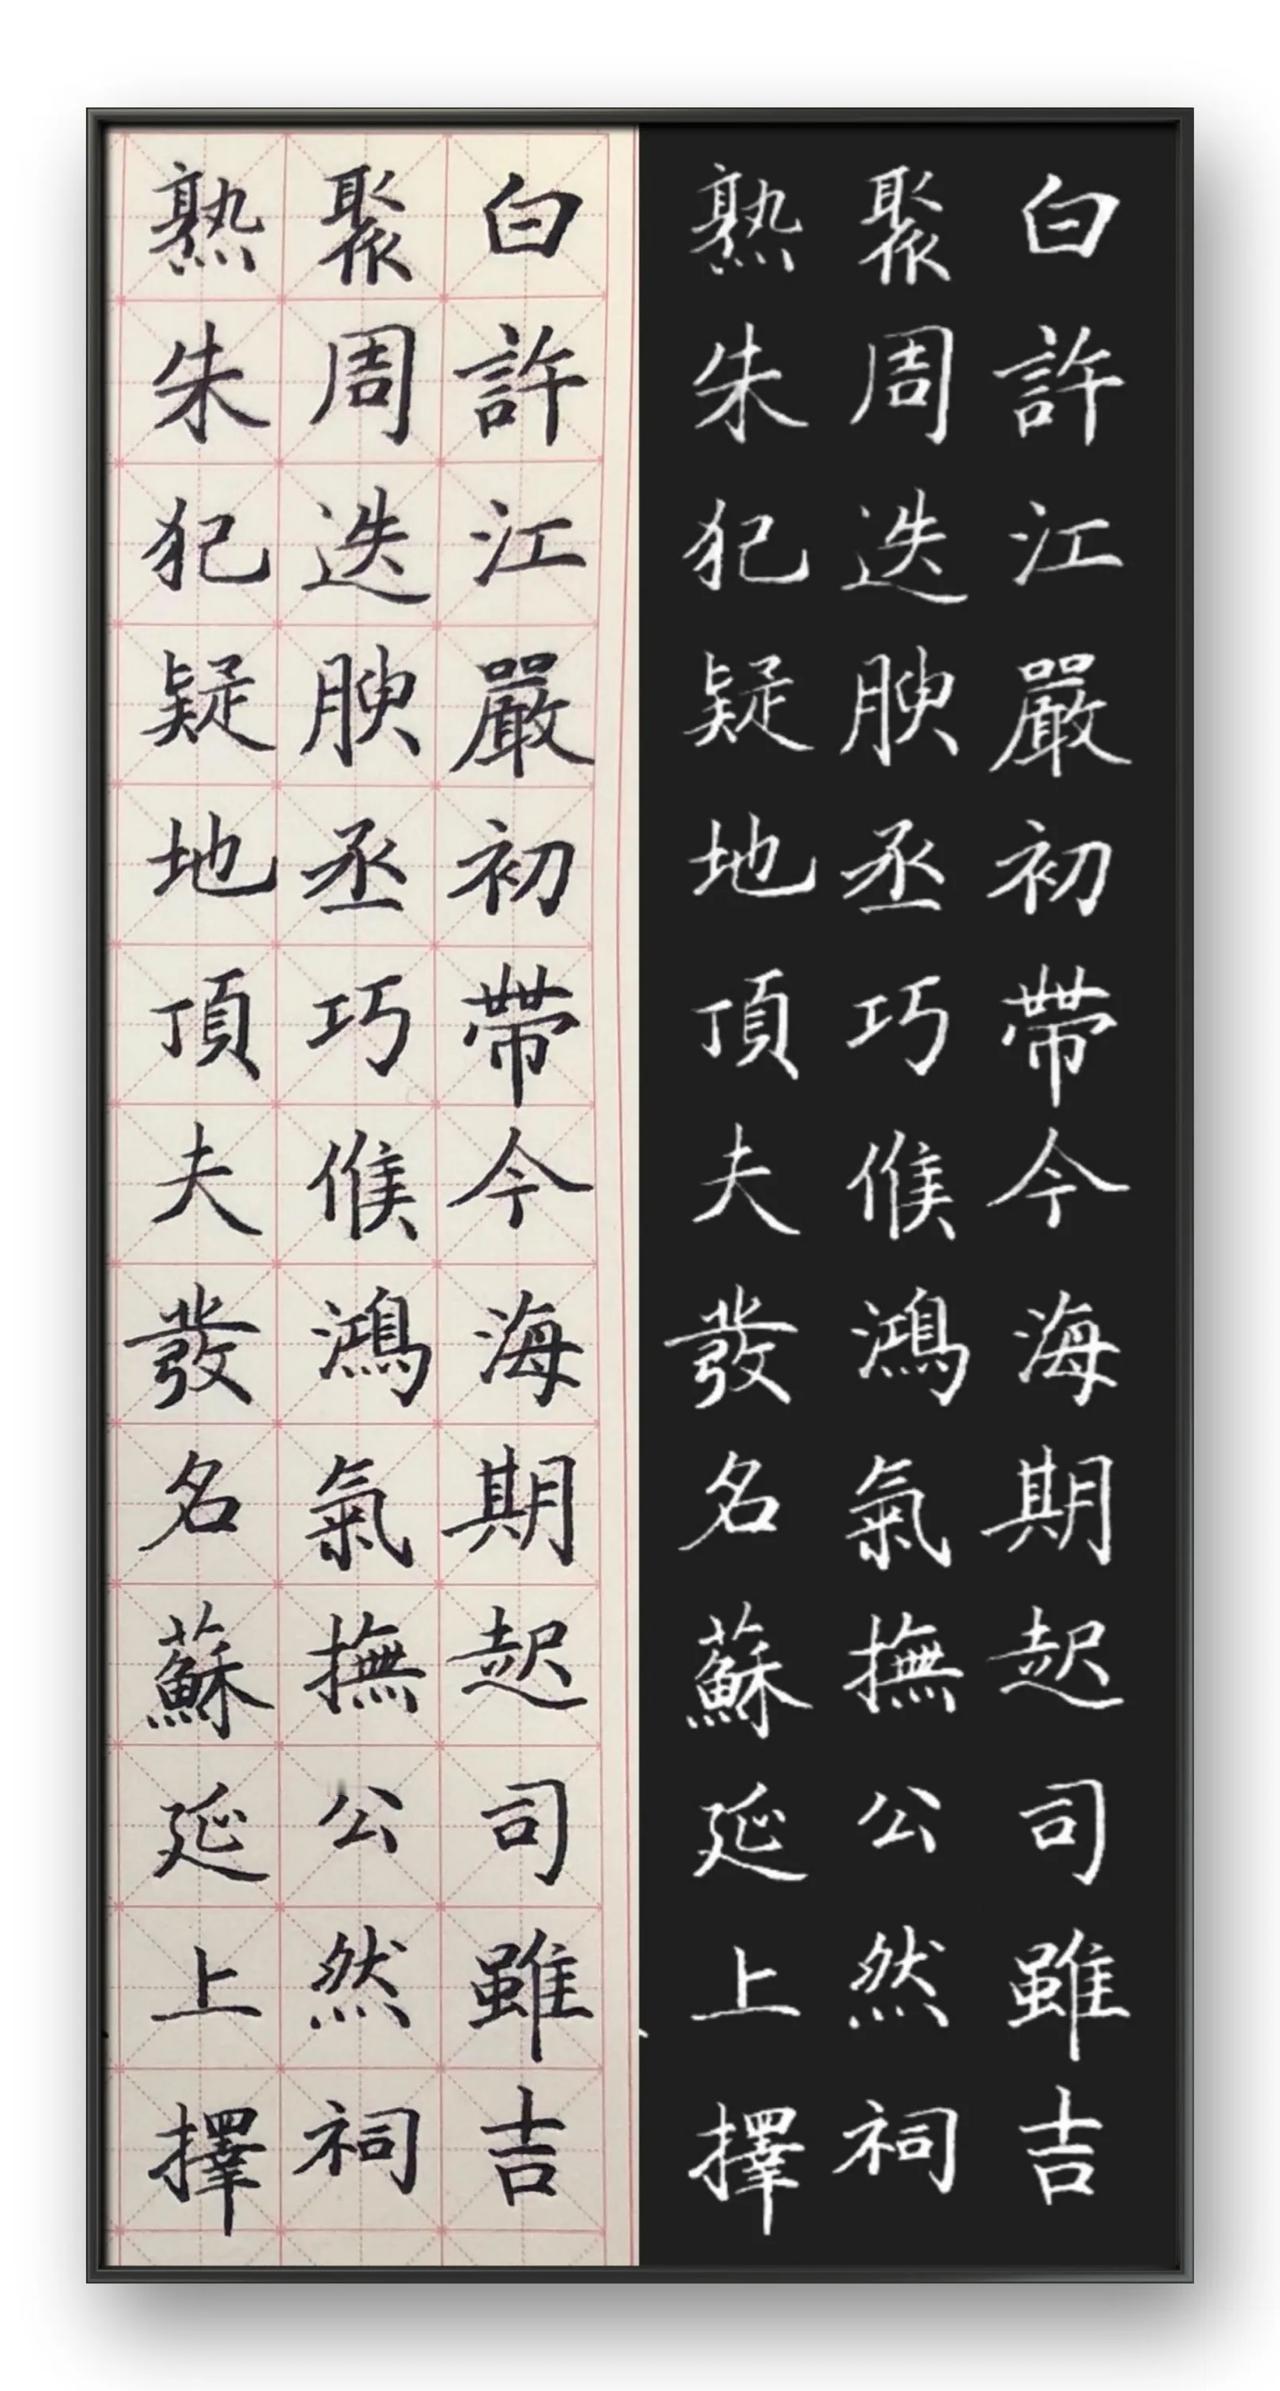 白許江嚴初帶今海期起司雖吉
聚周迭腴丞巧候鴻氣撫公然祠
熟朱犯疑地頂夫發名蘇延上擇
白許江嚴初帶今海期起司雖吉
聚周迭腴丞巧候鴻氣撫公然祠
熟朱犯疑地頂夫發名蘇延上擇